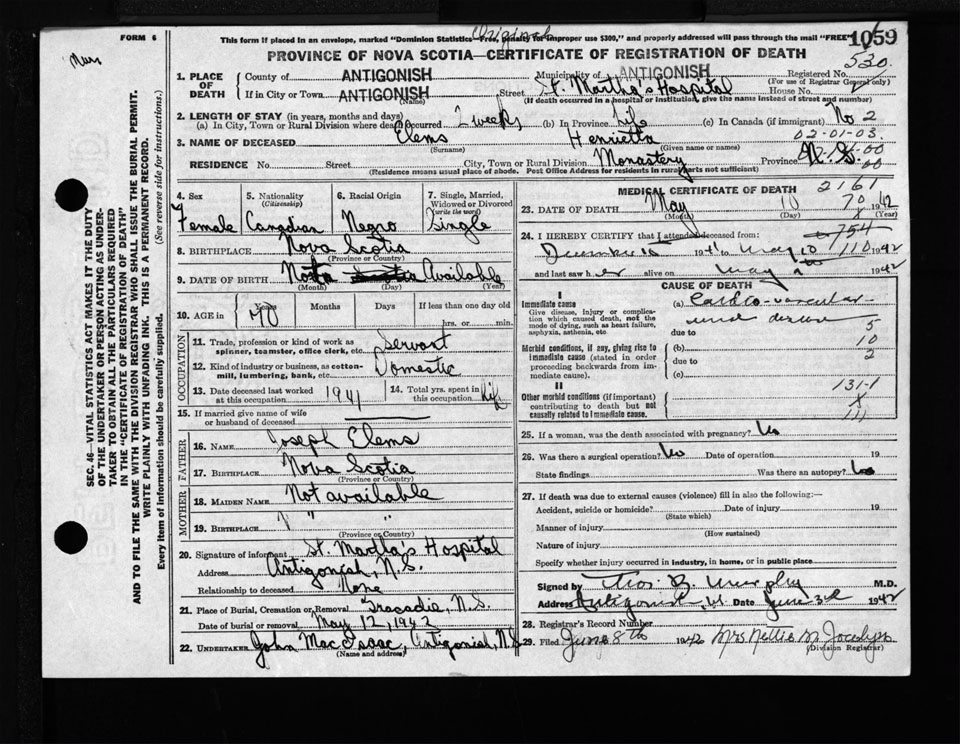 FORM 6
This form if placed in an envelope, marked "Dominion Statistics—Free, penalty for improper use $300," and properly addressed will pass through the mail "FREE"
Original
1059
PROVINCE OF NOVA SCOTIA—CERTIFICATE OF REGISTRATION OF DEATH
530
1. PLACE OF DEATH
County of ANTIGONISH Municipality of ANTIGONISH Registered No.
(For use of Registrar General only)
If in City or Town ANTIGONISH Street St. Martha's Hospital House No.
(Name) (If death occurred in a hospital or institution, give the name instead of street and number)
2. LENGTH OF STAY (in years, months and days)
(a) In City, Town or Rural Division where death occurred 2 weeks (b) In Province Life (c) In Canada (if immigrant) No 2
02-01-03.
3. NAME OF DECEASED Elems Henrietta
(Surname) (Given name or names)
RESIDENCE No. Street City, Town or Rural Division Monastery Province N.S.
(Residence means usual place of abode. Post Office Address for residents in rural parts not sufficient)
4. Sex Female
5. Nationality (Citizenship) Canadian
6. Racial Origin Negro
7. Single, Married, Widowed or Divorced (write the word) Single
8. BIRTHPLACE Nova Scotia
(Province or Country)
9. DATE OF BIRTH Not Available
(Month) (Day) (Year)
10. AGE 70 Months Days If less than one day old
hrs. or min.
OCCUPATION
11. Trade, profession or kind of work as spinner, teamster, office clerk, etc. Servant
12. Kind of industry or business, as cotton-mill, lumbering, bank, etc. Domestic
13. Date deceased last worked at this occupation 1941
14. Total yrs. spent in this occupation life
15. If married give name of wife or husband of deceased
FATHER
16. NAME Joseph Elems
17. BIRTHPLACE Nova Scotia
(Province or Country)
MOTHER
18. MAIDEN NAME Not available
19. BIRTHPLACE " "
(Province or Country)
20. Signature of informant St. Martha's Hospital
Address Antigonish, N.S.
Relationship to deceased None
21. Place of Burial, Cremation or Removal Tracadie, N.S.
Date of burial or removal May 12, 1942
22. UNDERTAKER John MacIsaac, Antigonish, N.S.
(Name and address)
MEDICAL CERTIFICATE OF DEATH
2161
23. DATE OF DEATH May 10 1942
(Month) (Day) (Year)
754
24. I HEREBY CERTIFY that I attended deceased from:
December 15 1941 to May 10 1942
110
and last saw her alive on May 1942
CAUSE OF DEATH
I
Immediate cause
Give disease, injury or complication which caused death, not the mode of dying, such as heart failure, asphyxia, asthenia, etc.
(a) Cardio-vascular-renal disease
due to 5
Morbid conditions, if any, giving rise to immediate cause (stated in order proceeding backwards from immediate cause).
(b) 10
due to 2
(c)
II
Other morbid conditions (if important) contributing to death but not causally related to immediate cause.
131-1
X
111
25. If a woman, was the death associated with pregnancy? No
26. Was there a surgical operation? No Date of operation 19
State findings Was there an autopsy? No
27. If death was due to external causes (violence) fill in also the following:—
Accident, suicide or homicide? Date of injury 19
(State which)
Manner of injury
(How sustained)
Nature of injury
Specify whether injury occurred in industry, in home, or in public place
Signed by Thos. B. Murphy M.D.
Address Antigonish Date June 3rd 1942
28. Registrar's Record Number
29. Filed June 8th 1942 Mrs Nellie M Jocelyn
(Division Registrar)
SEC. 46—VITAL STATISTICS ACT MAKES IT THE DUTY
OF THE UNDERTAKER OR PERSON ACTING AS UNDER-
TAKER TO OBTAIN ALL THE PARTICULARS REQUIRED
IN THE "CERTIFICATE OF REGISTRATION OF DEATH"
AND TO FILE THE SAME WITH THE DIVISION REGISTRAR WHO SHALL ISSUE THE BURIAL PERMIT.
WRITE PLAINLY WITH UNFADING INK. THIS IS A PERMANENT RECORD.
Every item of Information should be carefully supplied. (See reverse side for instructions.)